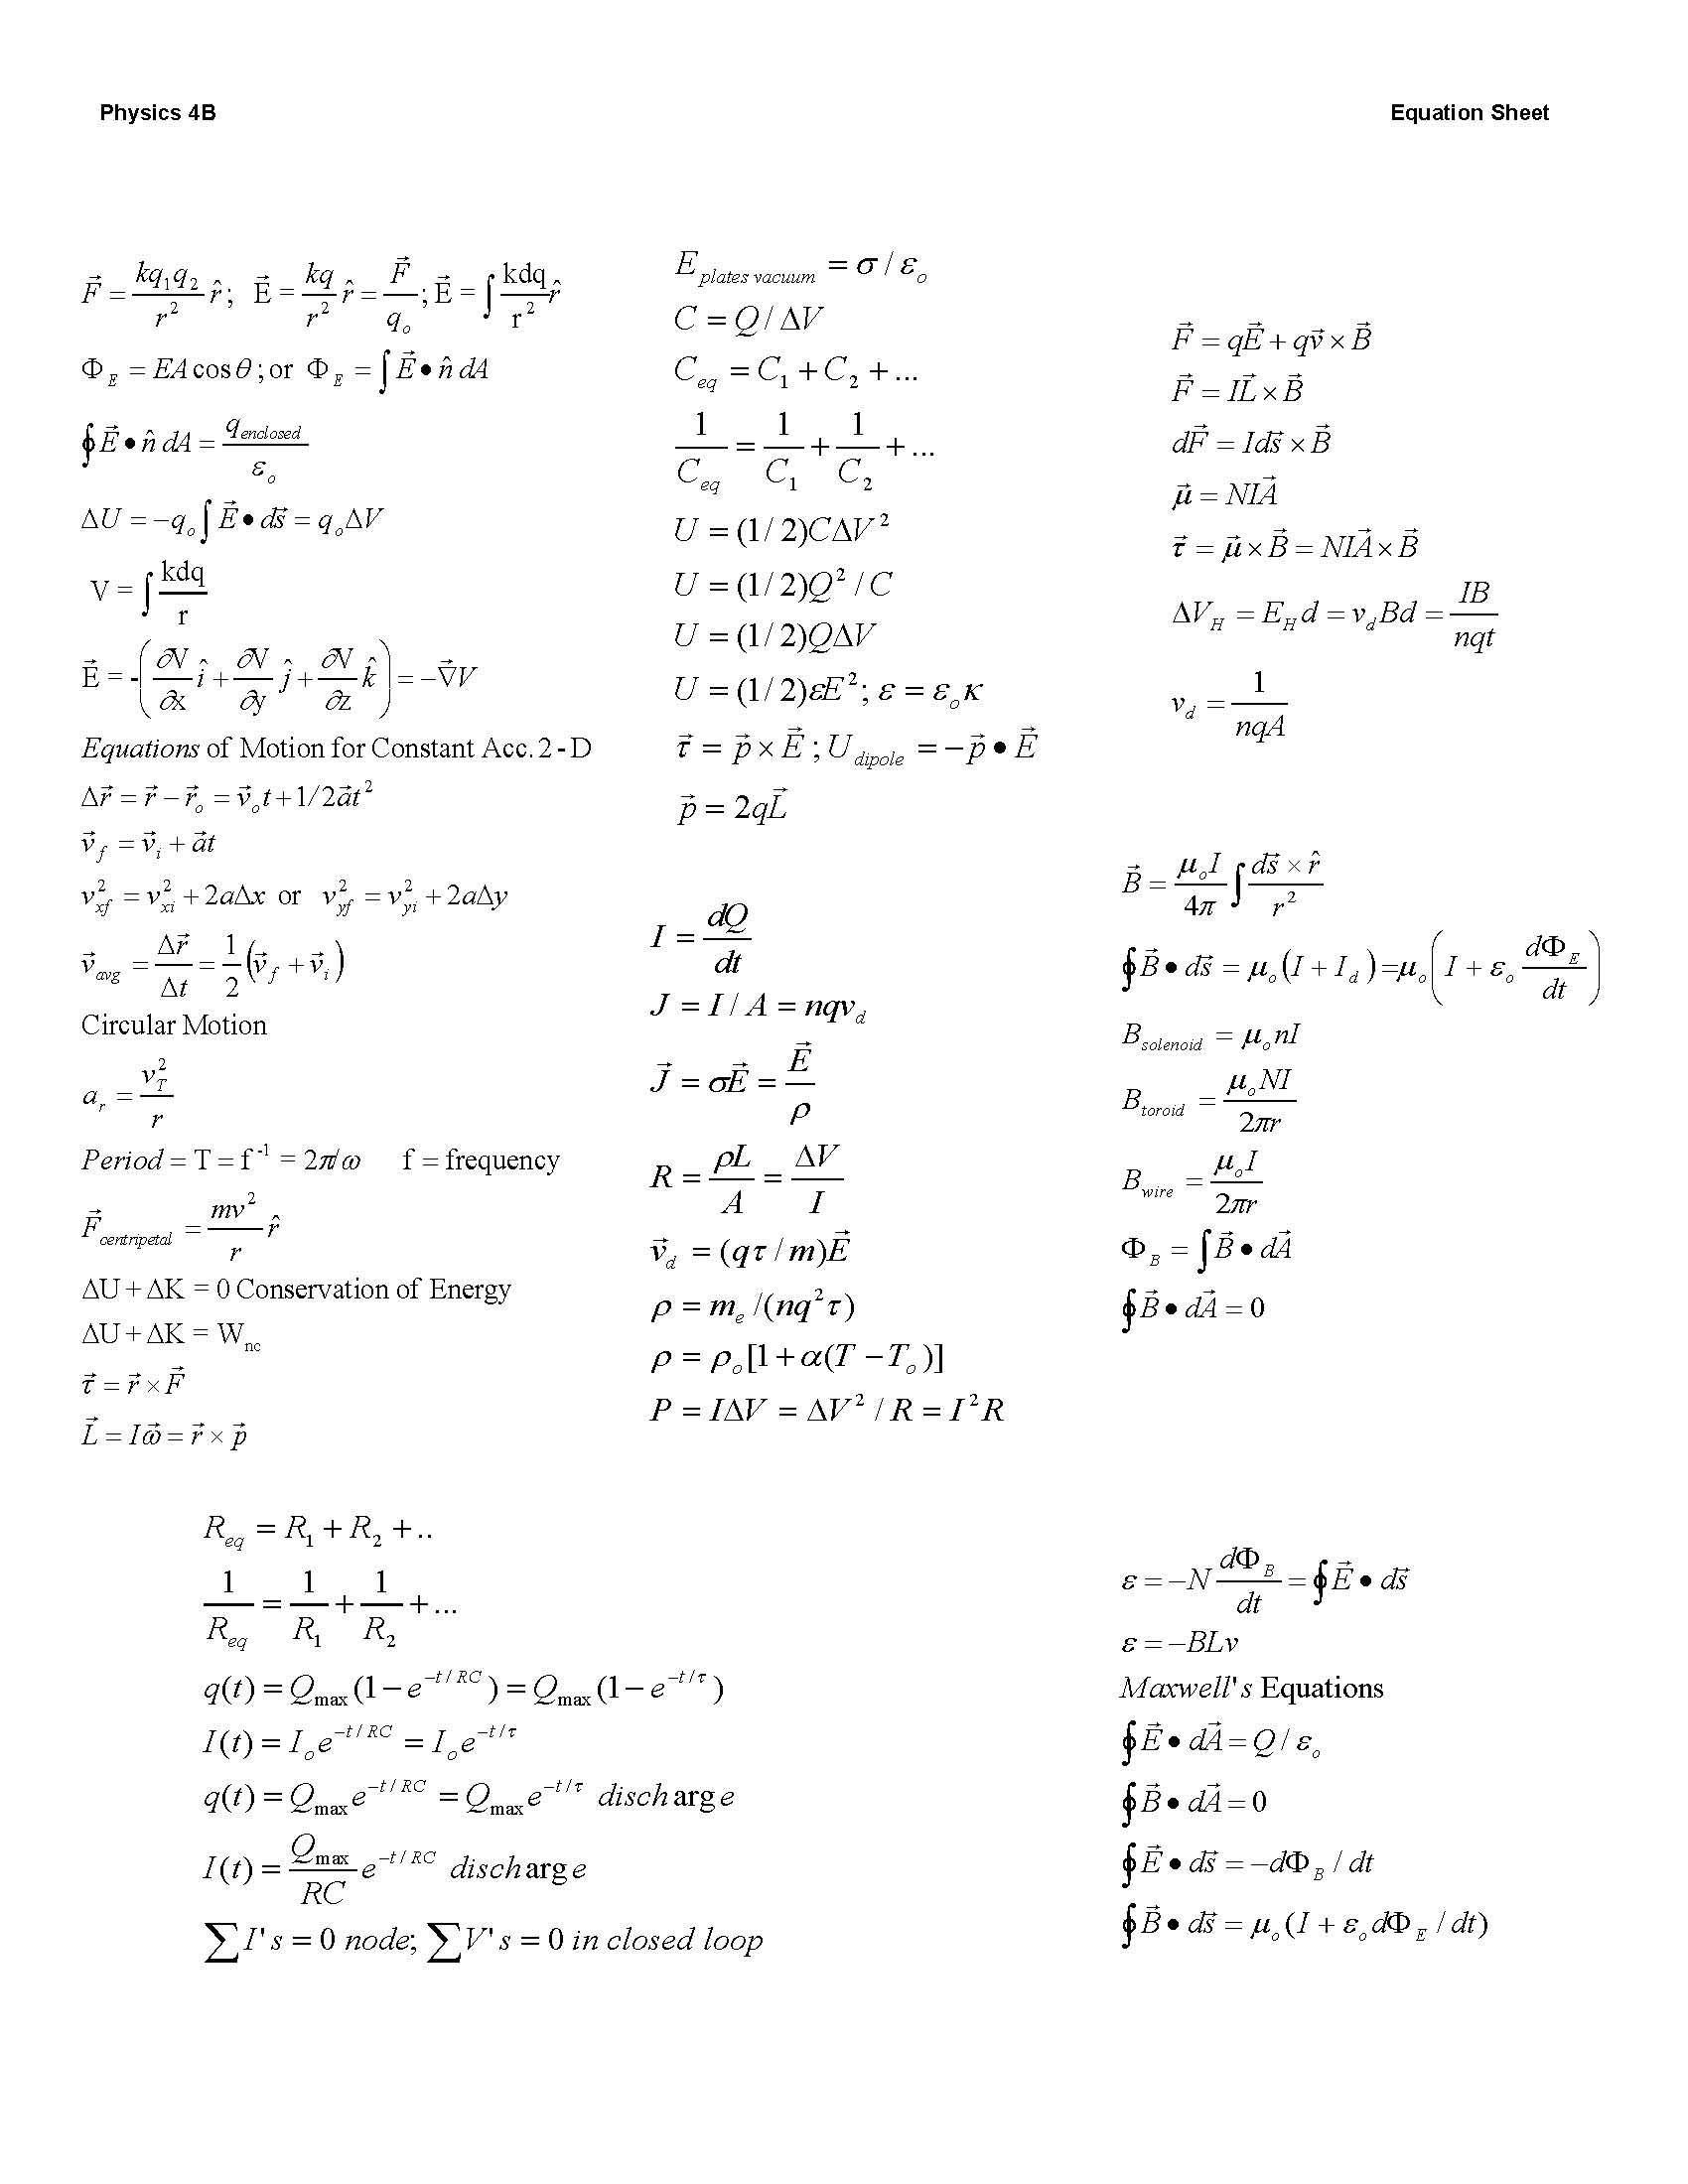 Physics 4B
Equation Sheet
\vec{F} = \frac{kq_1q_2}{r^2}\hat{r}; \vec{E} = \frac{kq}{r^2}\hat{r} = \frac{\vec{F}}{q_o}; \vec{E} = \int\frac{kdq}{r^2}\hat{r}
Φ_E = EA cos θ; or Φ_E = \int\vec{E}•\hat{n} dA
\oint\vec{E}•\hat{n} dA = \frac{q_{enclosed}}{ε_o}
ΔU = −q_o\int\vec{E}•d\vec{s} = q_oΔV
V = \int\frac{kdq}{r}
\vec{E} = -\left(\frac{∂V}{∂x}\hat{i} + \frac{∂V}{∂y}\hat{j} + \frac{∂V}{∂z}\hat{k}\right) = −\vec{∇}V
Equations of Motion for Constant Acc. 2 - D
Δ\vec{r} = \vec{r} − \vec{r}_o = \vec{v}_o t + 1/2\vec{a}t^2
\vec{v}_f = \vec{v}_i + \vec{a}t
v_{xf}^2 = v_{xi}^2 + 2aΔx or v_{yf}^2 = v_{yi}^2 + 2aΔy
\vec{v}_{avg} = \frac{Δ\vec{r}}{Δt} = \frac{1}{2}(\vec{v}_f + \vec{v}_i)
Circular Motion
a_r = \frac{v_T^2}{r}
Period = T = f^{-1} = 2π/ω f = frequency
\vec{F}_{centripetal} = \frac{mv^2}{r}\hat{r}
ΔU + ΔK = 0 Conservation of Energy
ΔU + ΔK = W_{nc}
\vec{τ} = \vec{r} × \vec{F}
\vec{L} = I\vec{ω} = \vec{r} × \vec{p}
E_{plates vacuum} = σ / ε_o
C = Q / ΔV
C_{eq} = C_1 + C_2 + ...
\frac{1}{C_{eq}} = \frac{1}{C_1} + \frac{1}{C_2} + ...
U = (1/2)CΔV^2
U = (1/2)Q^2 / C
U = (1/2)QΔV
U = (1/2)εE^2; ε = ε_oκ
\vec{τ} = \vec{p} × \vec{E}; U_{dipole} = −\vec{p} • \vec{E}
\vec{p} = 2q\vec{L}
I = \frac{dQ}{dt}
J = I / A = nqv_d
\vec{J} = σ\vec{E} = \frac{\vec{E}}{ρ}
R = \frac{ρL}{A} = \frac{ΔV}{I}
\vec{v}_d = (qτ / m)\vec{E}
ρ = m_e /(nq^2τ)
ρ = ρ_o[1 + α(T − T_o)]
P = IΔV = ΔV^2 / R = I^2R
\vec{F} = q\vec{E} + q\vec{v} × \vec{B}
\vec{F} = I\vec{L} × \vec{B}
d\vec{F} = Id\vec{s} × \vec{B}
\vec{μ} = NI\vec{A}
\vec{τ} = \vec{μ} × \vec{B} = NI\vec{A} × \vec{B}
ΔV_H = E_H d = v_d Bd = \frac{IB}{nqt}
v_d = \frac{1}{nqA}
\vec{B} = \frac{μ_o I}{4π}\int\frac{d\vec{s} × \hat{r}}{r^2}
\oint\vec{B}•d\vec{s} = μ_o(I + I_d) = μ_o\left(I + ε_o\frac{dΦ_E}{dt}\right)
B_{solenoid} = μ_o nI
B_{toroid} = \frac{μ_o NI}{2πr}
B_{wire} = \frac{μ_o I}{2πr}
Φ_B = \int\vec{B}•d\vec{A}
\oint\vec{B}•d\vec{A} = 0
R_{eq} = R_1 + R_2 + ..
\frac{1}{R_{eq}} = \frac{1}{R_1} + \frac{1}{R_2} + ...
q(t) = Q_{max}(1 − e^{−t/RC}) = Q_{max}(1 − e^{−t/τ})
I(t) = I_o e^{−t/RC} = I_o e^{−t/τ}
q(t) = Q_{max} e^{−t/RC} = Q_{max} e^{−t/τ} discharge
I(t) = \frac{Q_{max}}{RC} e^{−t/RC} discharge
∑I's = 0 node; ∑V's = 0 in closed loop
ε = −N\frac{dΦ_B}{dt} = \oint\vec{E}•d\vec{s}
ε = −BLv
Maxwell's Equations
\oint\vec{E}•d\vec{A} = Q / ε_o
\oint\vec{B}•d\vec{A} = 0
\oint\vec{E}•d\vec{s} = −dΦ_B / dt
\oint\vec{B}•d\vec{s} = μ_o(I + ε_o dΦ_E / dt)